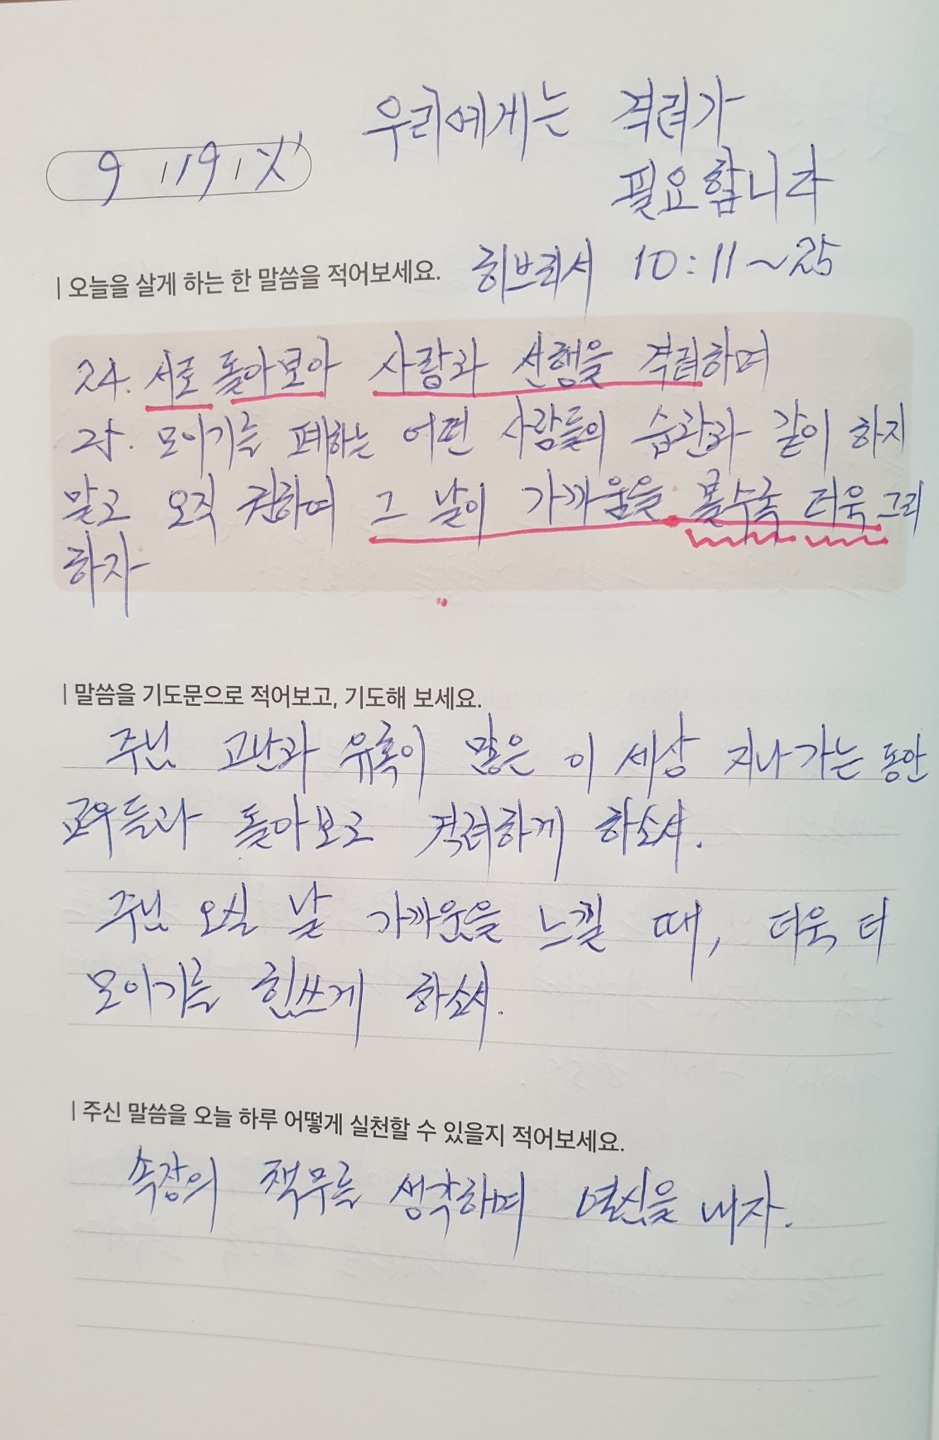 우리에게는 격려가
필요합니다
9 / 19 / 火
| 오늘을 살게 하는 한 말씀을 적어보세요.
히브리서 10:11~25
24. 서로 돌아보아 사랑과 선행을 격려하며
25. 모이기를 폐하는 어떤 사람들의 습관과 같이 하지
말고 오직 권하여 그 날이 가까움을 볼수록 더욱 그리
하자
| 말씀을 기도문으로 적어보고, 기도해 보세요.
주님 고난과 유혹이 많은 이 세상 지나 가는 동안
교우들과 돌아보고 격려하게 하소서.
주님 오실 날 가까운을 느낄 때, 더욱 더
모이기를 힘쓰게 하소서.
| 주신 말씀을 오늘 하루 어떻게 실천할 수 있을지 적어보세요.
속장의 책무를 생각하며 열심을 내자.